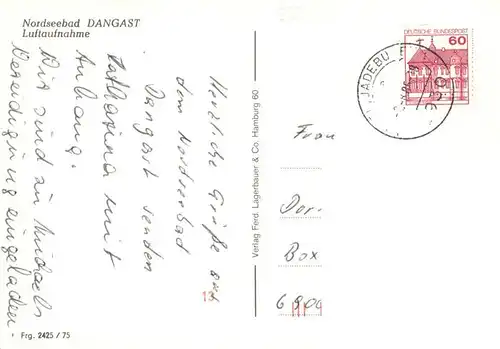 Nordseebad DANGAST
Luftaufnahme
Herzliche Grüße aus
dem Nordseebad
Dangast senden
Katharina mit
Anhang.
Wir sind zu Michaels
Vereidigung eingeladen.
Verlag Ferd. Lagerbauer & Co. Hamburg 60
Frau
Dor-
Box
DEUTSCHE BUNDESPOST
60
JADEBU
Frg. 2425 / 75